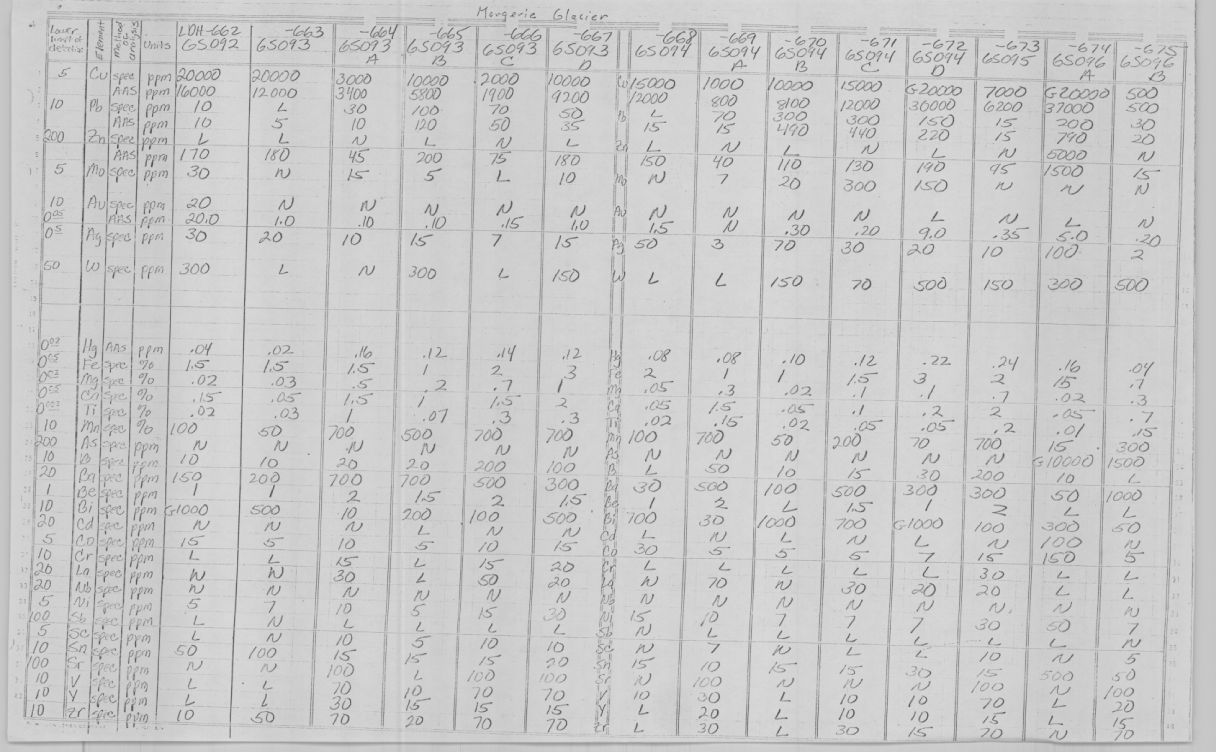 Margerie Glacier
Lower limit of detection Element Method of analysis Units LDH-662 -663 -664 -665 -666 -667 -668 -669 -670 -671 -672 -673 -674 -675
6S092 6S093 6S093 6S093 6S093 6S093 6S094 6S094 6S094 6S094 6S094 6S095 6S096 6S096
A B C D A B C D A B
5 Cu spec ppm 20000 20000 3000 10000 2000 10000 Cu 15000 1000 10000 15000 G20000 7000 G20000 500
AAS ppm 16000 12000 3400 5800 1900 9200 12000 800 8100 12000 36000 6200 37000 500
10 Pb spec ppm 10 L 30 100 70 50 Pb L 70 300 300 150 15 200 30
AAS ppm 10 5 10 120 50 35 15 15 490 440 220 15 790 20
200 Zn spec ppm L L N L N L Zn L N L N L N 5000 N
AAS ppm 170 180 45 200 75 180 150 40 110 130 190 95 1500 15
5 Mo spec ppm 30 N 15 5 L 10 Mo N 7 20 300 150 N N N
10 Au spec ppm 20 N N N N N Au N N N N L N L N
0.05 AAS ppm 20.0 1.0 .10 .10 .15 1.0 1.5 N .30 .20 9.0 .35 5.0 .20
0.5 Ag spec ppm 30 20 10 15 7 15 Ag 50 3 70 30 20 10 100 2
50 W spec ppm 300 L N 300 L 150 W L L 150 70 500 150 300 500
0.02 Hg AAS ppm .04 .02 .16 .12 .14 .12 Hg .08 .08 .10 .12 .22 .24 .16 .04
0.05 Fe spec % 1.5 1.5 1.5 1 2 3 Fe 2 1 1 1.5 3 2 15 .7
0.02 Mg spec % .02 .03 .5 .2 .7 1 Mg .05 .3 .02 .1 .1 .7 .02 .3
0.05 Ca spec % .15 .05 1.5 1 1.5 2 Ca .05 1.5 .05 .1 .2 2 .05 .7
0.002 Ti spec % .02 .03 .1 .07 .3 .3 Ti .02 .15 .02 .05 .05 .2 .01 .15
10 Mn spec % 100 50 700 500 700 700 Mn 100 700 50 200 70 700 15 300
200 As spec ppm N N N N N N As N N N N N N G10000 1500
10 B spec ppm 10 10 20 20 200 100 B L 50 10 15 30 200 10 L
20 Ba spec ppm 150 200 700 700 500 300 Ba 30 500 100 500 300 300 50 1000
1 Be spec ppm 1 1 2 1.5 2 1.5 Be 1 2 L 1.5 1 2 L L
10 Bi spec ppm G1000 500 10 200 100 500 Bi 700 30 1000 700 G1000 100 300 50
20 Cd spec ppm N N N L N N Cd L N L N L N 100 N
5 Co spec ppm 15 5 10 5 10 15 Co 30 5 5 5 7 15 150 5
10 Cr spec ppm L L 15 L 15 20 Cr L L L L L 30 L L
20 La spec ppm N N 30 L 50 20 La N 70 N 30 20 20 L L
20 Nb spec ppm N N N N N N Nb N N N N N N N N
5 Ni spec ppm 5 7 10 5 15 30 Ni 15 10 7 7 7 30 50 7
100 Sb spec ppm L N L L L L Sb N L L L L L L L
5 Sc spec ppm L N 10 5 10 10 Sc N 7 N L L 10 N 5
10 Sn spec ppm 50 100 15 15 15 20 Sn 15 10 15 15 30 15 500 50
100 Sr spec ppm N N 100 L 100 100 Sr N 100 N N N 100 N 100
10 V spec ppm L L 70 10 70 70 V 10 30 L 10 10 70 L 20
10 Y spec ppm L L 30 15 15 15 Y L 20 L 10 10 15 L 15
10 Zr spec ppm 10 50 70 20 70 70 Zr L 30 L 30 15 70 N 70